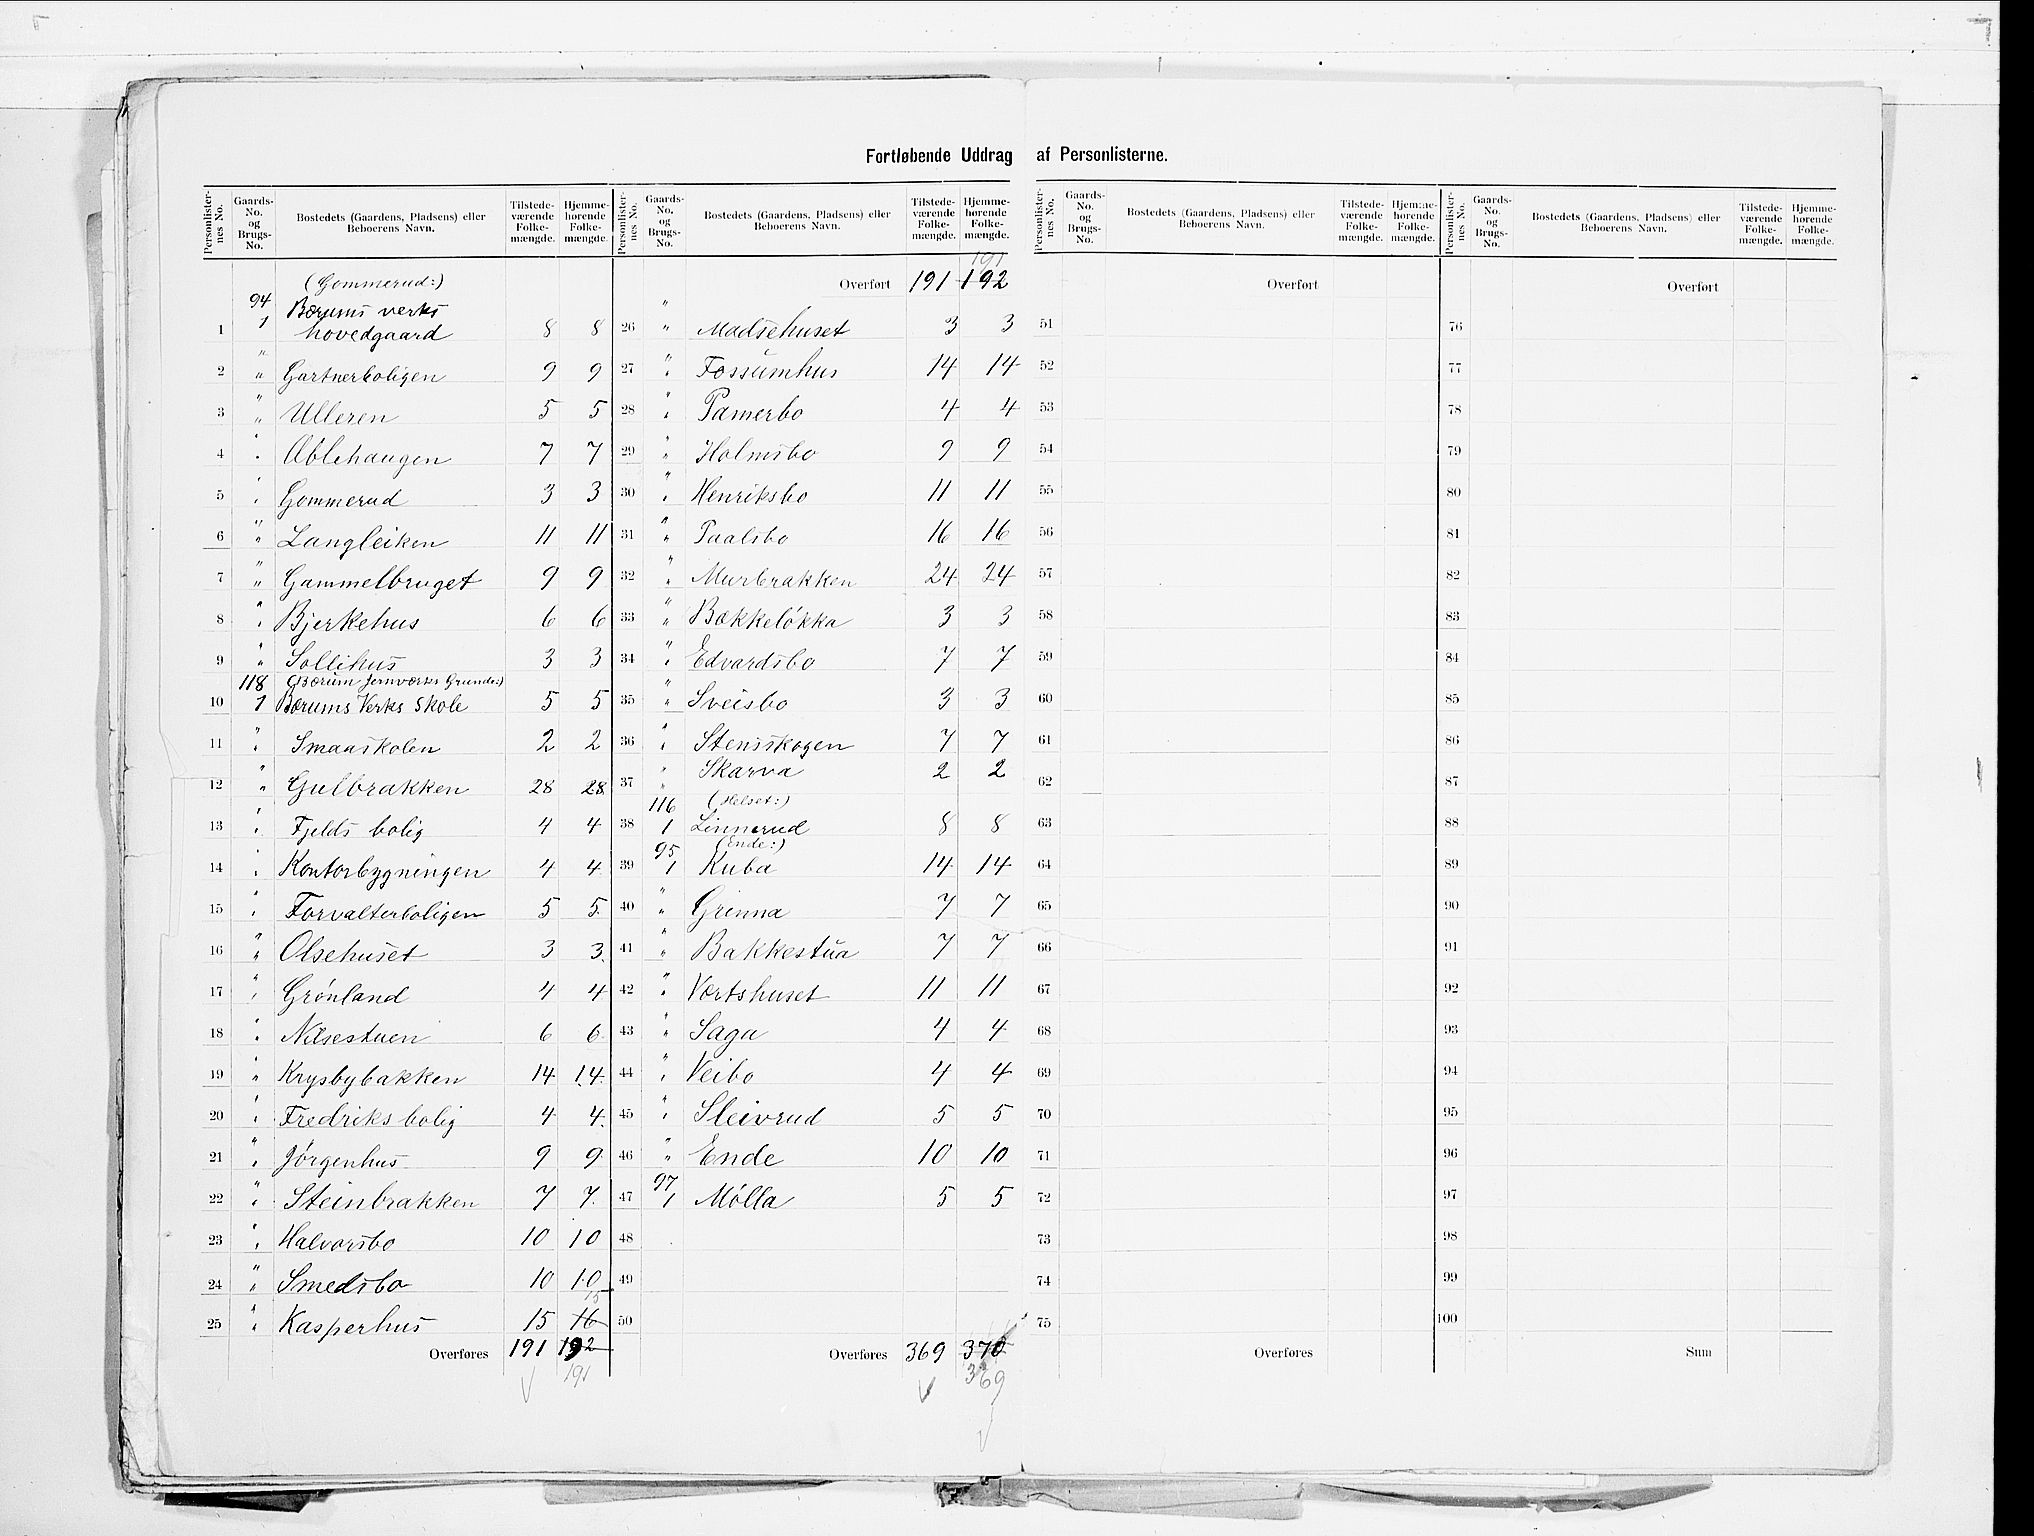 Fortløbende Uddrag af Personlisterne.
Personlister-nes No. Gaards-No. og Brugs-No. Bostedets (Gaardens, Pladsens) eller Beboerens Navn. Tilstede-værende Folke-mængde. Hjemme-hørende Folke-mængde.
(Gommerud:)
94
1 1 Bærums verks hovedgaard 8 8
2 " " Gartnerboligen 9 9
3 " " Ulleren 5 5
4 " " Ablehaugen 7 7
5 " " Gommerud 3 3
6 " " Langleiken 11 11
7 " " Gammelbruget 9 9
8 " " Bjerkehus 6 6
9 " " Sollihus 3 3
118 (Bærum Jernværks Grunde:)
10 1 Bærums Verks Skole 5 5
11 " " Smaaskolen 2 2
12 " " Gulbrakken 28 28
13 " " Fjelds bolig 4 4
14 " " Kontorbygningen 4 4
15 " " Forvalterboligen 5 5
16 " " Olsehuset 3 3
17 " " Grønland 4 4
18 " " Nilsestuen 6 6
19 " " Krysbybakken 14 14
20 " " Fredriks bolig 4 4
21 " " Jørgenhus 9 9
22 " " Steinbrakken 7 7
23 " " Halvorsbo 10 10
24 " " Smedsbo 10 10
15
25 " " Kasperhus 15 16
Overføres 191 192
191
Personlister-nes No. Gaards-No. og Brugs-No. Bostedets (Gaardens, Pladsens) eller Beboerens Navn. Tilstede-værende Folke-mængde. Hjemme-hørende Folke-mængde.
191
Overført 191 192
26 " " Madsehuset 3 3
27 " " Fossumhus 14 14
28 " " Pamerbo 4 4
29 " " Holmsbo 9 9
30 " " Henriksbo 11 11
31 " " Paalsbo 16 16
32 " " Murbrakken 24 24
33 " " Bakkeløkka 3 3
34 " " Edvardsbo 7 7
35 " " Sveisbo 3 3
36 " " Stensskogen 7 7
37 " " Skarva 2 2
116 (Helset:)
38 1 Linnerud 8 8
95 (Ende:)
39 1 Kuba 14 14
40 " " Grinna 7 7
41 " " Bakkestua 7 7
42 " " Vertshuset 11 11
43 " " Saga 4 4
44 " " Veibo 4 4
45 " " Sleivrud 5 5
46 " " Ende 10 10
97
47 1 Mølla 5 5
48
49
50
Overføres 369 370
369
Personlister-nes No. Gaards-No. og Brugs-No. Bostedets (Gaardens, Pladsens) eller Beboerens Navn. Tilstede-værende Folke-mængde. Hjemme-hørende Folke-mængde.
Overført
51
52
53
54
55
56
57
58
59
60
61
62
63
64
65
66
67
68
69
70
71
72
73
74
75
Overføres
Personlister-nes No. Gaards-No. og Brugs-No. Bostedets (Gaardens, Pladsens) eller Beboerens Navn. Tilstede-værende Folke-mængde. Hjemme-hørende Folke-mængde.
Overført
76
77
78
79
80
81
82
83
84
85
86
87
88
89
90
91
92
93
94
95
96
97
98
99
100
Sum